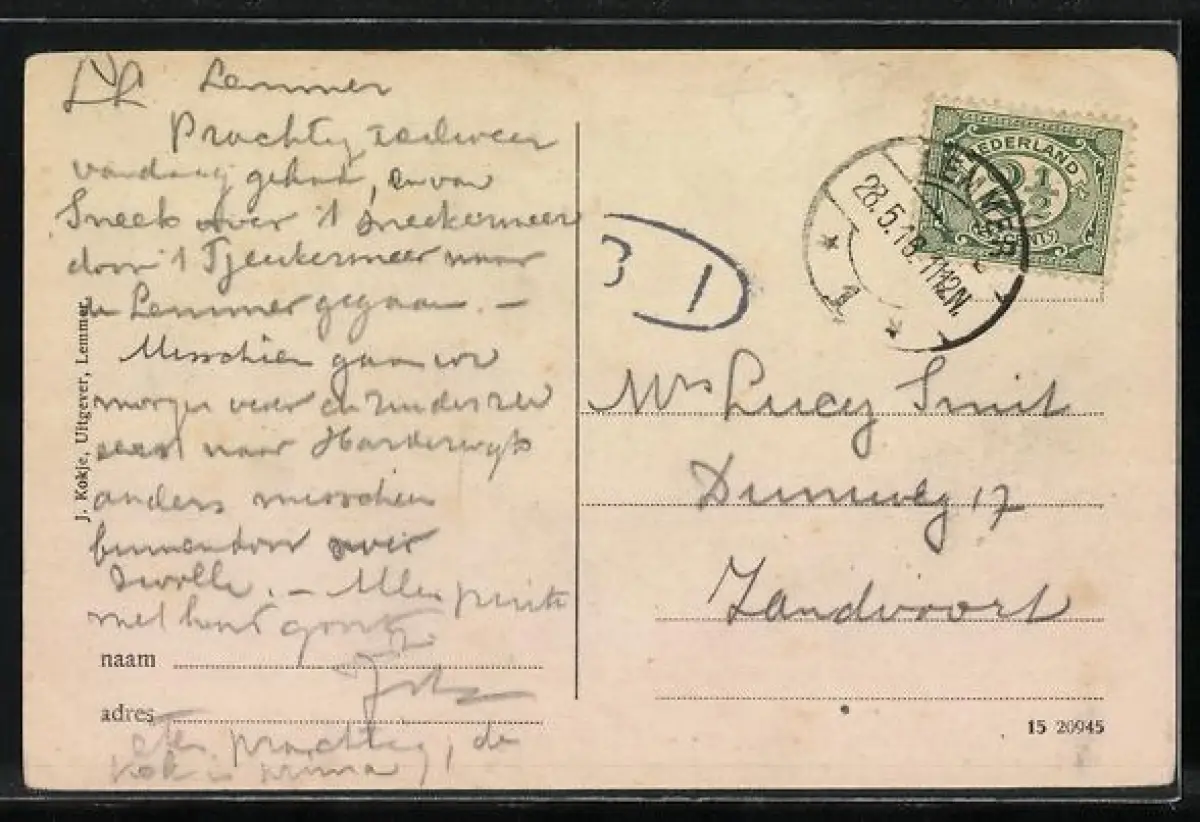 Lemmer
Prachtig zeilweer
vandaag gehad, en van
Sneek over 't Sneekermeer
door 't Tjeukermeer naar
de Lemmer gegaan. –
Misschien gaan we
morgen weer en Zuiderzee
naar Harderwijk
anders misschien
binnendoor over
Zwolle. – Alles
met hond
eten prachtig, de
kok is prima!
J. Kokje, Uitgever, Lemmer.
naam
adres
NEDERLAND
2½
CENT
LEMMER
28.5.18. 11-12 N.
1
Mrs Lucy Smit
Duinweg 17
Zandvoort
15 20945